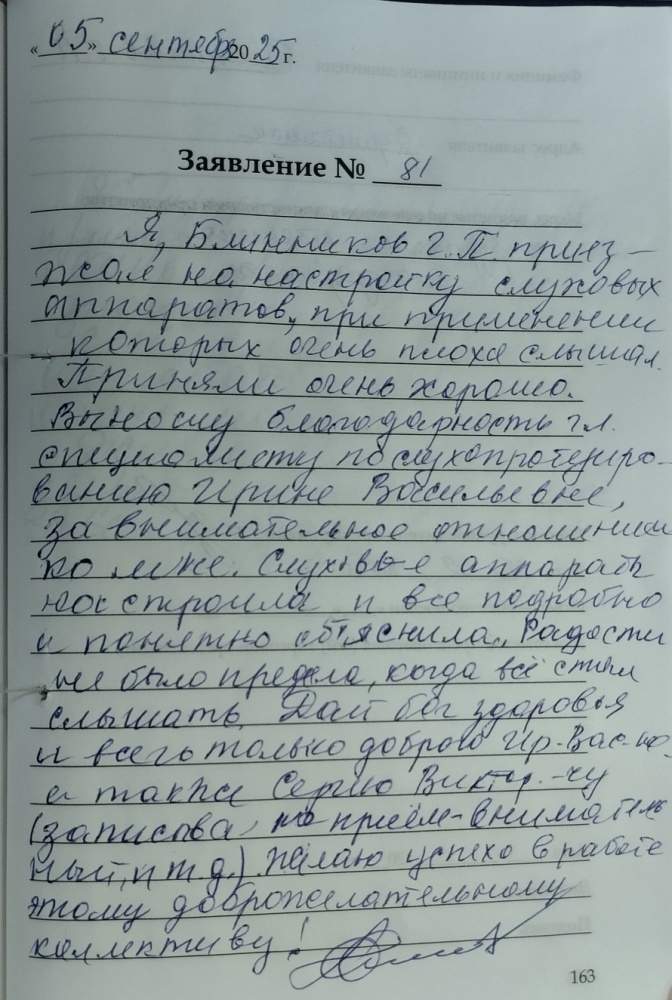 «05» сентябр 2025 г.
Заявление № 81
Я, Блинников Г.П. приез-
жал на настройку слуховых
аппаратов, при применении
которых очень плохо слышал.
Приняли очень хорошо.
Выношу благодарность гл.
специалисту по слухопротезиро-
ванию Ирине Васильевне,
за внимательное отношении
ко мне. Слуховые аппараты
настроила и все подробно
и понятно объяснила. Радости
не было предела, когда всё стал
слышать. Дай бог здоровья
и всего только доброго Ир. Вас-не,
а также Сергею Виктор.-чу
(записова на приём-вниматель
ный, и т.д.). Желаю успеха в работе
этому доброжелательному
коллективу!
163